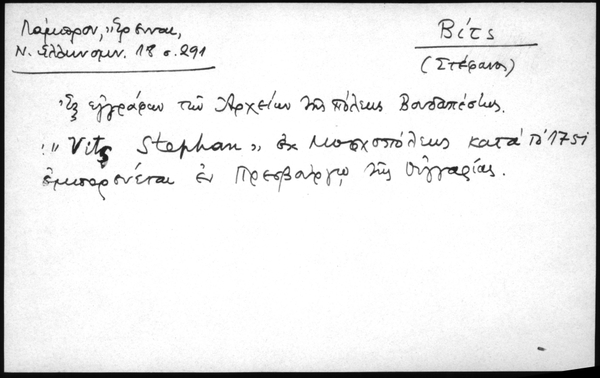 Λάμπρου, "Έρευναι,
Ν. Ελληνομν. 18 σ. 291
Βίτς
(Στέφανος)
Ἐξ ἐγγράφων τῶν Ἀρχείων τῆς πόλεως Βουδαπέστης.
: "Vits Stephan" ἐκ Μοσχοπόλεως κατὰ τὸ 1751
ἐμπορεύεται ἐν Πρεσβούργῳ τῆς Οὐγγαρίας.